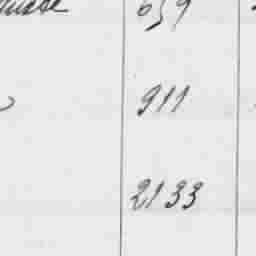 659
911
2133